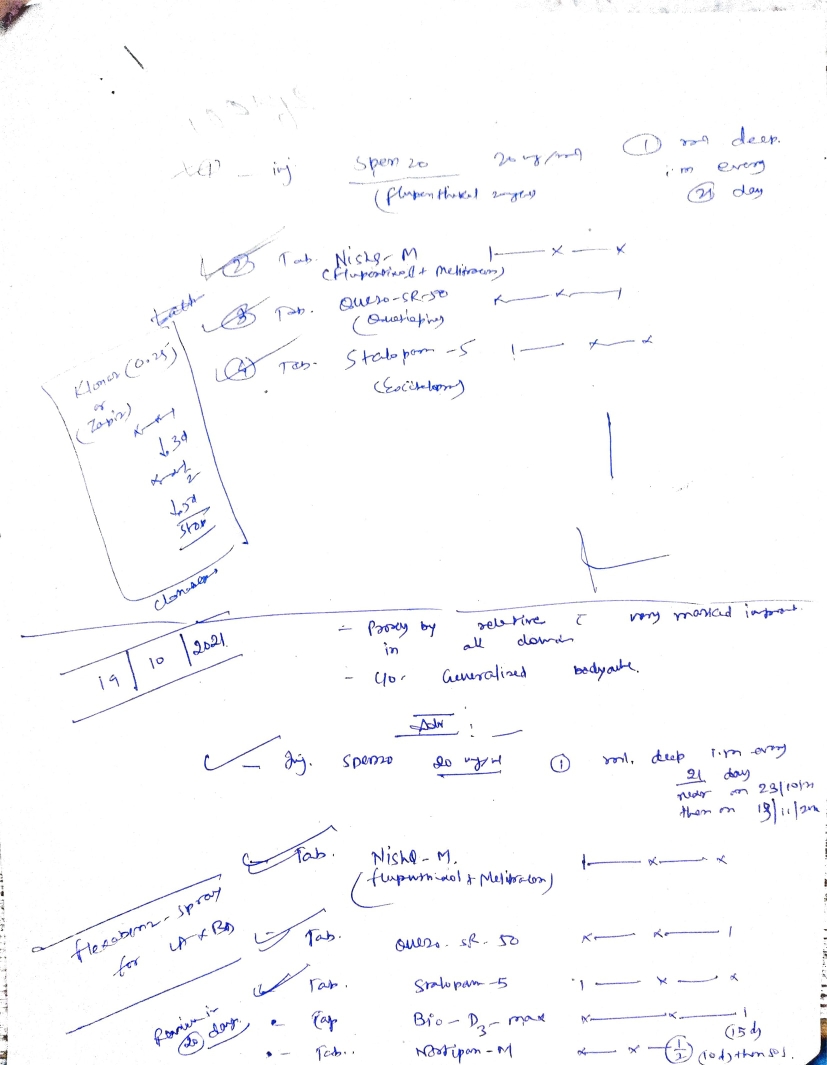 inj Spenzo 20 mg/ml ① ml deep
i.m every
(flupenthixol 20mg)
㉑ day
② Tab. Nishq-M 1 — x — x
(flupentixol + Melitracen)
③ Tab. Quezo-SR-50 x — x — 1
(Quetiapine)
④ Tab. Stalopam -5 1 — x — x
Klonor (0.25)
or
(Zapiz)
x — x — 1
↓ 3d
x — x — 1/2
↓ 3d
Stop
19/10/2021
- Proxy by relative c very marked improt.
in all domain
- C/o - Generalised bodyache.
Adv :-
- Inj. Spenzo 20 mg/ml ① ml. deep i.m every
21 day
next on 23/10/21
then on 13/11/2021
Tab. Nishq-M. 1 — x — x
(flupentixol + Melitracen)
flexabenz-spray
for LA x BD
Tab. Quezo. SR. 50 x — x — 1
Tab. Stalopam -5 1 — x — x
Review in
⑳ days.
Cap Bio-D3-max x — x — 1
(15d)
- Tab. -M x — x — 1/2 (10d) then sos.